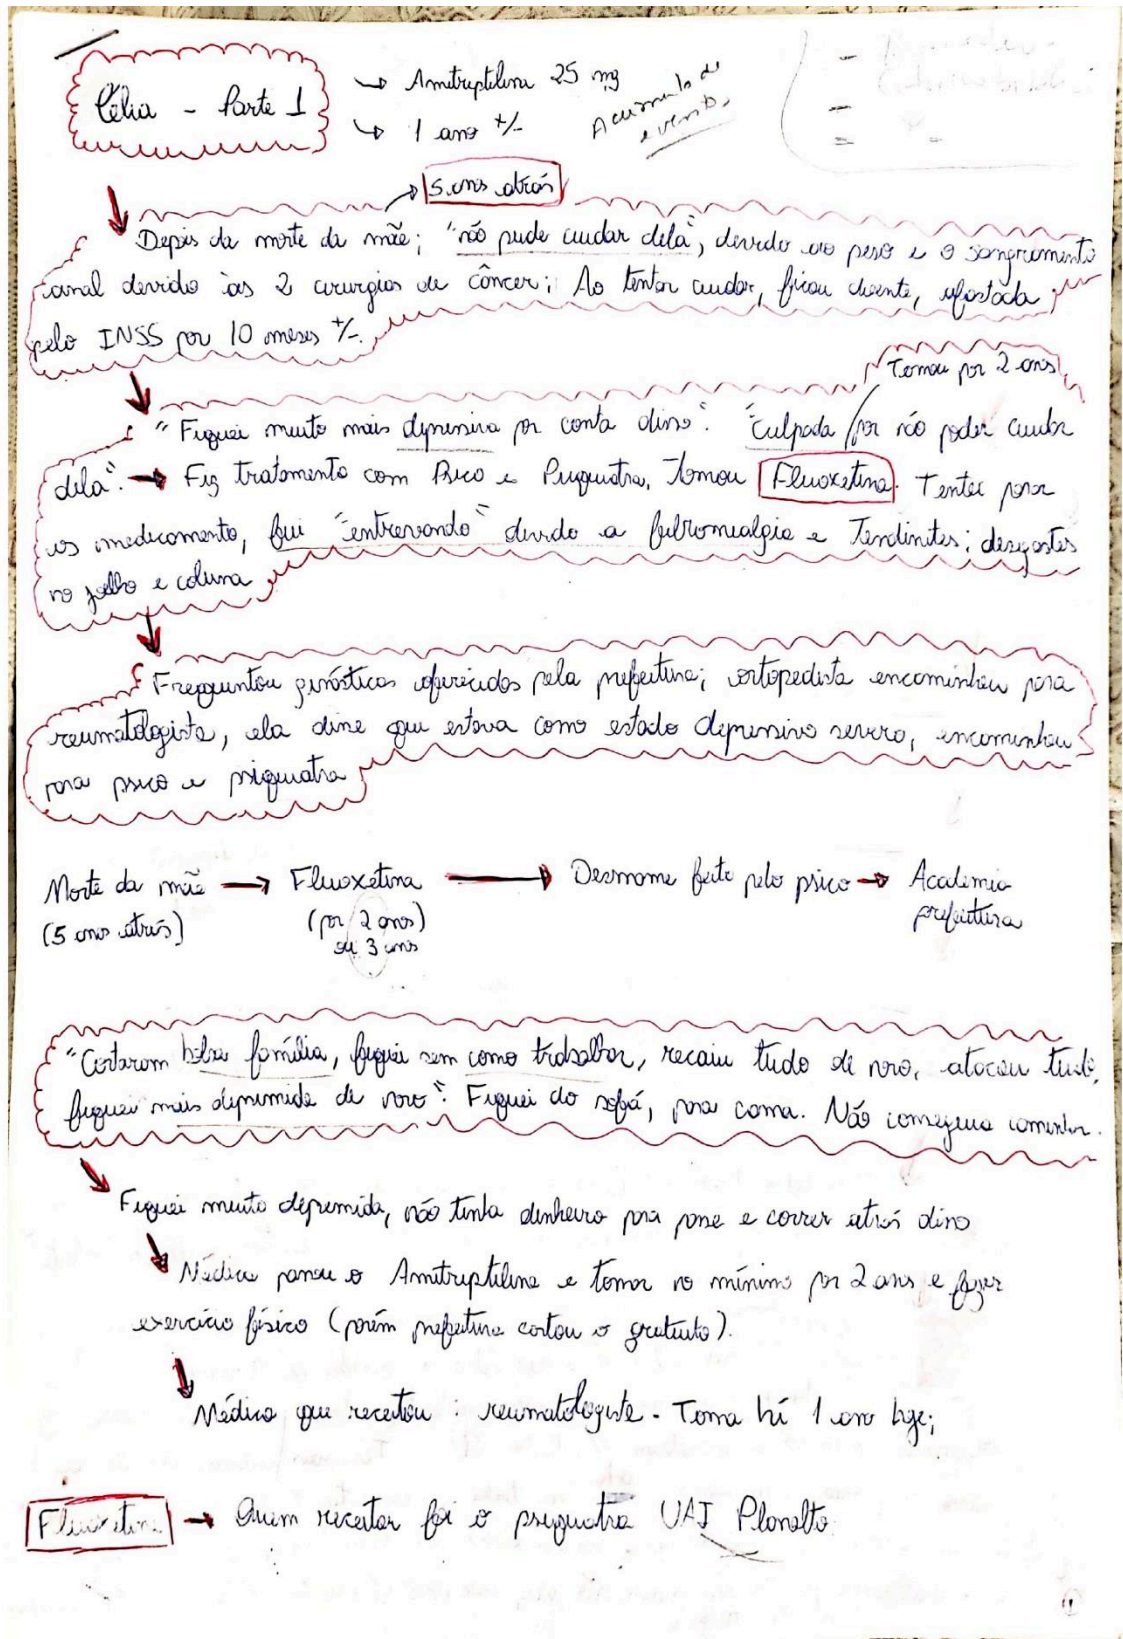 Célia - Parte 1
→ Amitriptilina 25 mg
→ 1 ano +/-
Acúmulo de
eventos
5 anos atrás
Depois da morte da mãe; "não pude cuidar dela", devido ao peso e o sangramento
anal devido às 2 cirurgias de câncer; Ao tentar cuidar, ficou doente, afastada
pelo INSS por 10 meses +/-.
Tomou por 2 anos
"Fiquei muito mais depressiva por conta disso". "Culpada por não poder cuidar
dela". → Fiz tratamento com Psico e Psiquiatra, tomou Fluoxetina. Tentei parar
os medicamento, fui "entrevando" devido a fibromialgia e Tendinites; desgastes
no joelho e coluna
Frequentou ginásticas oferecidas pela prefeitura; ortopedista encaminhou para
reumatologista, ela disse que estava como estado depressivo severo, encaminhou
para psico e psiquiatra
Morte da mãe → Fluoxetina → Desmame feito pelo psico → Academia
(5 anos atrás) (por 2 anos) prefeitura
ou 3 anos
"Cortaram bolsa família, fiquei sem como trabalhar, recaiu tudo de novo, atacou tudo,
fiquei mais deprimida de novo". Fiquei do sofá, para cama. Não conseguia caminhar.
Fiquei muito deprimida, não tinha dinheiro para passe e correr atrás disso
Médica passou o Amitriptilina e tomar no mínimo por 2 anos e fazer
exercício físico (porém prefeitura cortou o gratuito).
Médica que receitou: reumatologista - Toma há 1 ano hoje;
Fluoxetina → Quem receitar foi o psiquiatra UAI Planalto
1